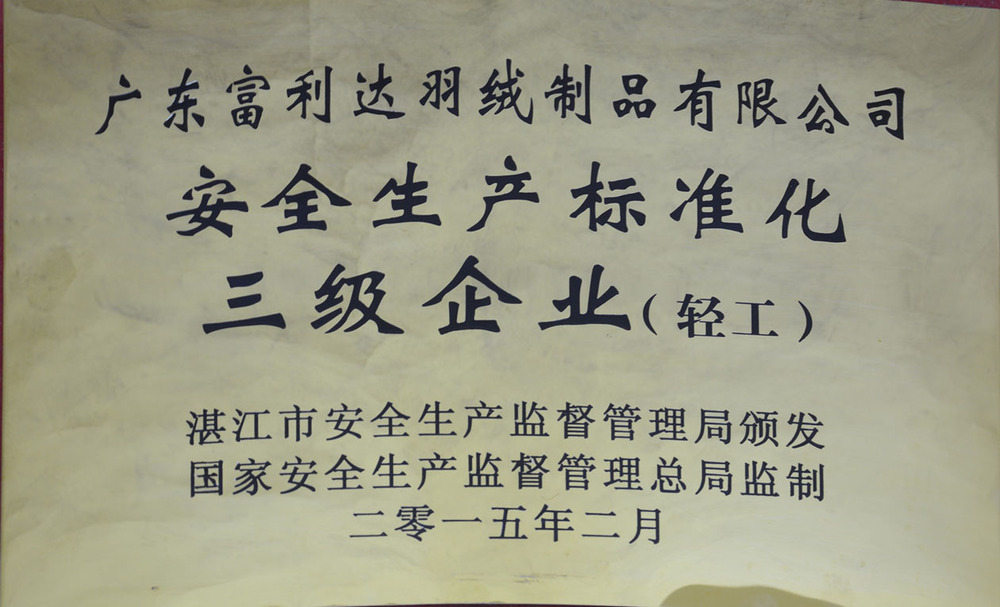 广东富利达羽绒制品有限公司
安全生产标准化
三级企业(轻工)
湛江市安全生产监督管理局颁发
国家安全生产监督管理总局监制
二零一五年二月